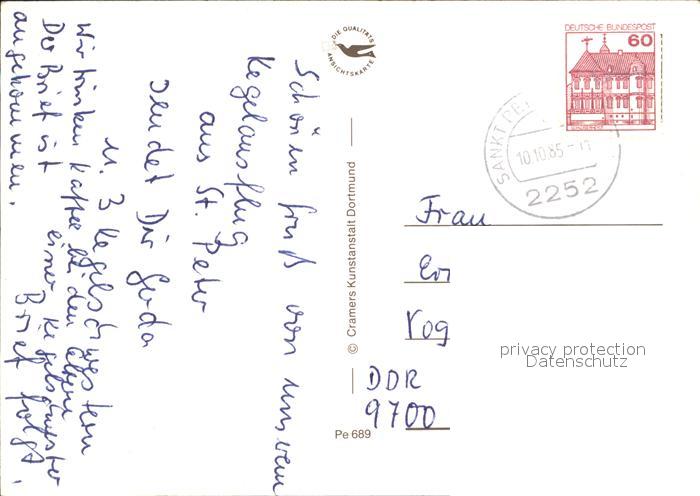 Schönen Gruß von unserem
Kegelausflug
aus St. Peter
sendet Dir Gerda
u. 3 Kegelschwestern
Wir trinken Kaffee bei den Eltern
einer Kegelschwester
Der Brief ist
angekommen.
Brief folgt.
DIE QUALITÄTS
ANSICHTSKARTE
© Cramers Kunstanstalt Dortmund
Pe 689
DEUTSCHE BUNDESPOST
60
SANKT PE
10.10.85
2252
Frau
Vog
DDR
9700
privacy protection
Datenschutz